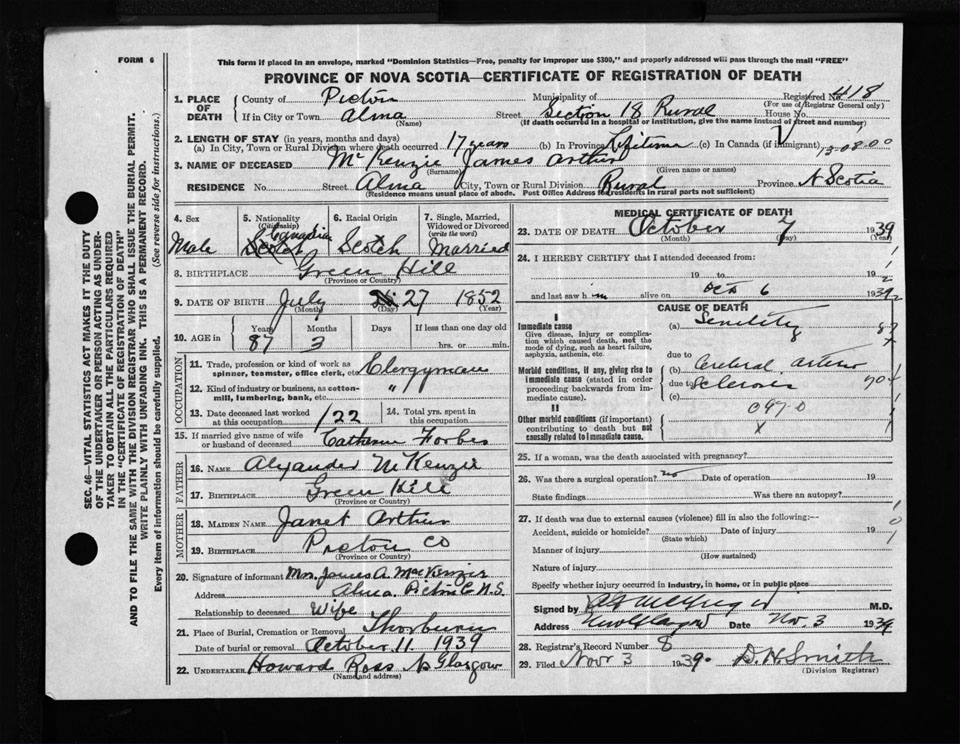 FORM 6
This form if placed in an envelope, marked "Dominion Statistics—Free, penalty for improper use $300," and properly addressed will pass through the mail "FREE"
PROVINCE OF NOVA SCOTIA—CERTIFICATE OF REGISTRATION OF DEATH
Registered No. 418
(For use of Registrar General only)
1. PLACE OF DEATH
County of Pictou Municipality of
If in City or Town Alma Street Section 18 Rural House No.
(Name) (If death occurred in a hospital or institution, give the name instead of street and number)
2. LENGTH OF STAY (in years, months and days)
(a) In City, Town or Rural Division where death occurred 17 years (b) In Province Lifetime (c) In Canada (if immigrant)
3. NAME OF DECEASED McKenzie James Arthur
(Surname) (Given name or names)
RESIDENCE No. Street Alma City, Town or Rural Division Rural Province N Scotia
(Residence means usual place of abode. Post Office Address for residents in rural parts not sufficient)
4. Sex Male
5. Nationality (Citizenship) Canadian Scotch
6. Racial Origin Scotch
7. Single, Married, Widowed or Divorced (write the word) Married
8. BIRTHPLACE Green Hill
(Province or Country)
9. DATE OF BIRTH July 27 1852
(Month) (Day) (Year)
10. AGE in Years Months Days If less than one day old
87 3 hrs. or min.
OCCUPATION
11. Trade, profession or kind of work as spinner, teamster, office clerk, etc. Clergyman
12. Kind of industry or business, as cotton-mill, lumbering, bank, etc. "
13. Date deceased last worked at this occupation 1/22
14. Total yrs. spent in this occupation
15. If married give name of wife or husband of deceased Catherine Forbes
FATHER
16. NAME Alexander McKenzie
17. BIRTHPLACE Green Hill
(Province or Country)
MOTHER
18. MAIDEN NAME Janet Arthur
19. BIRTHPLACE Pictou Co
(Province or Country)
20. Signature of informant Mrs. James A. MacKenzie
Address Alma Pictou C N.S.
Relationship to deceased Wife
21. Place of Burial, Cremation or Removal Thorburn
Date of burial or removal October 11 1939
22. UNDERTAKER Howard Ross N. Glasgow
(Name and address)
MEDICAL CERTIFICATE OF DEATH
23. DATE OF DEATH October 7 1939
(Month) (Day) (Year)
24. I HEREBY CERTIFY that I attended deceased from:
19 to 19
and last saw him alive on Oct 6 1939
CAUSE OF DEATH
I
Immediate cause
Give disease, injury or complication which caused death, not the mode of dying, such as heart failure, asphyxia, asthenia, etc.
(a) Senility
due to
Morbid conditions, if any, giving rise to immediate cause (stated in order proceeding backwards from immediate cause).
(b) Cerebral arterio
due to sclerosis
(c)
097.0
II
Other morbid conditions (if important) contributing to death but not causally related to immediate cause.
X
25. If a woman, was the death associated with pregnancy?
26. Was there a surgical operation? no Date of operation 19
State findings Was there an autopsy?
27. If death was due to external causes (violence) fill in also the following:—
Accident, suicide or homicide? Date of injury 19
(State which)
Manner of injury
(How sustained)
Nature of injury
Specify whether injury occurred in industry, in home, or in public place
Signed by M.D.
Address New Glasgow Date Nov. 3 1939
28. Registrar's Record Number 8
29. Filed Nov 3 1939. D. H. Smith
(Division Registrar)
SEC. 46—VITAL STATISTICS ACT MAKES IT THE DUTY
OF THE UNDERTAKER OR PERSON ACTING AS UNDERTAKER
TO OBTAIN ALL THE PARTICULARS REQUIRED
IN THE "CERTIFICATE OF REGISTRATION OF DEATH"
AND TO FILE THE SAME WITH THE DIVISION REGISTRAR WHO SHALL ISSUE THE BURIAL PERMIT.
WRITE PLAINLY WITH UNFADING INK. THIS IS A PERMANENT RECORD.
Every item of information should be carefully supplied. (See reverse side for instructions.)